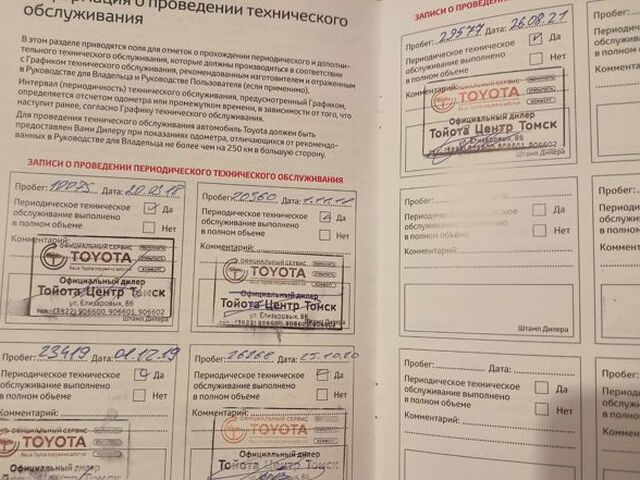 о проведении технического
обслуживания
В этом разделе приводятся поля для отметок о прохождении периодического и дополни-
тельного технического обслуживания, которые должны производиться в соответствии
с Графиком технического обслуживания, рекомендованным изготовителем и отраженным
в Руководстве для Владельца и Руководстве Пользователя (если применимо).
Интервал (периодичность) технического обслуживания, предусмотренный Графиком,
определяется отсчетом одометра или промежутком времени, в зависимости от того, что
наступит ранее, согласно Графику технического обслуживания.
Для проведения технического обслуживания автомобиль Toyota должен быть
предоставлен Вами Дилеру при показаниях одометра, отличающихся от рекомендо-
ванных в Руководстве для Владельца не более чем на 250 км в большую сторону.
ЗАПИСИ О ПРОВЕДЕНИИ ПЕРИОДИЧЕСКОГО ТЕХНИЧЕСКОГО ОБСЛУЖИВАНИЯ
Пробег: 10075 Дата: 20.03.18
Периодическое техническое
обслуживание выполнено
в полном объеме
Да
Нет
Комментарий:
ОФИЦИАЛЬНЫЙ СЕРВИС
TOYOTA
Официальный дилер
Тойота Центр Томск
ул. Елизаровых, 86
тел. (3822) 906600, 906601, 906602
Штамп Дилера
Пробег: 20360 Дата:
Периодическое техническое
обслуживание выполнено
в полном объеме
Да
Нет
Комментарий:
ОФИЦИАЛЬНЫЙ СЕРВИС
TOYOTA
Официальный дилер
Тойота Центр Томск
ул. Елизаровых, 86
Пробег: 23419 Дата: 01.12.19
Периодическое техническое
обслуживание выполнено
в полном объеме
Да
Нет
Комментарий:
ОФИЦИАЛЬНЫЙ СЕРВИС
TOYOTA
Официальный дилер
Тойота Центр Томск
Пробег: 26268 Дата: 25.10.20
Периодическое техническое
обслуживание выполнено
в полном объеме
Да
Нет
Комментарий:
ОФИЦИАЛЬНЫЙ СЕРВИС
TOYOTA
Официальный дилер
Тойота Центр Томск
ЗАПИСИ О ПРОВЕДЕНИИ ПЕРИОДИЧЕСКОГО ТЕХНИЧЕСКОГО
Пробег: 29577 Дата: 26.08.21
Периодическое техническое
обслуживание выполнено
в полном объеме
Да
Нет
Комментарий:
TOYOTA
Официальный дилер
Тойота Центр Томск
ул. Елизаровых, 86
Штамп Дилера
Пробег: Дата:
Периодическое техническое
обслуживание выполнено
в полном объеме
Да
Нет
Комментарий:
Штамп Дилера
Пробег: Дата:
Периодическое техническое
обслуживание выполнено
в полном объеме
Да
Нет
Комментарий: